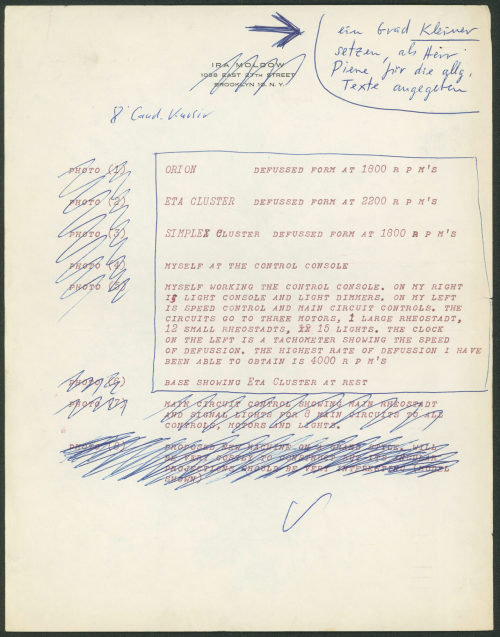 ein Grad Kleiner
setzen, als Herr
Piene für die allg.
Texte angegeben
IRA MOLDOW
1088 EAST 27TH STREET
BROOKLYN 10, N. Y.
8° Cand. Kursiv
PHOTO (1) ORION DEFUSSED FORM AT 1800 R P M'S
PHOTO (2) ETA CLUSTER DEFUSSED FORM AT 2200 R P M'S
PHOTO (3) SIMPLEX CLUSTER DEFUSSED FORM AT 1800 R P M'S
PHOTO (4) MYSELF AT THE CONTROL CONSOLE
PHOTO (5) MYSELF WORKING THE CONTROL CONSOLE. ON MY RIGHT
IS LIGHT CONSOLE AND LIGHT DIMMERS. ON MY LEFT
IS SPEED CONTROL AND MAIN CIRCUIT CONTROLS. THE
CIRCUITS GO TO THREE MOTORS, 1 LARGE RHEOSTADT,
12 SMALL RHEOSTADTS, 15 LIGHTS. THE CLOCK
ON THE LEFT IS A TACHOMETER SHOWING THE SPEED
OF DEFUSSION. THE HIGHEST RATE OF DEFUSSION I HAVE
BEEN ABLE TO OBTAIN IS 4000 R P M'S
PHOTO (6) BASE SHOWING ETA CLUSTER AT REST
PHOTO (7) MAIN CIRCUIT CONTROL SHOWING MAIN RHEOSTADT
AND SIGNAL LIGHTS FOR 8 MAIN CIRCUITS TO ALL
CONTROLS, MOTORS AND LIGHTS.
PHOTO (8) PROPOSED NEW MACHINE ON A GRAND STYLE. WILL
BE VERY COSTLY TO CONSTRUCT BUT ITS
PROJECTIONS SHOULD BE VERY INTERESTING (MODEL
SHOWN)